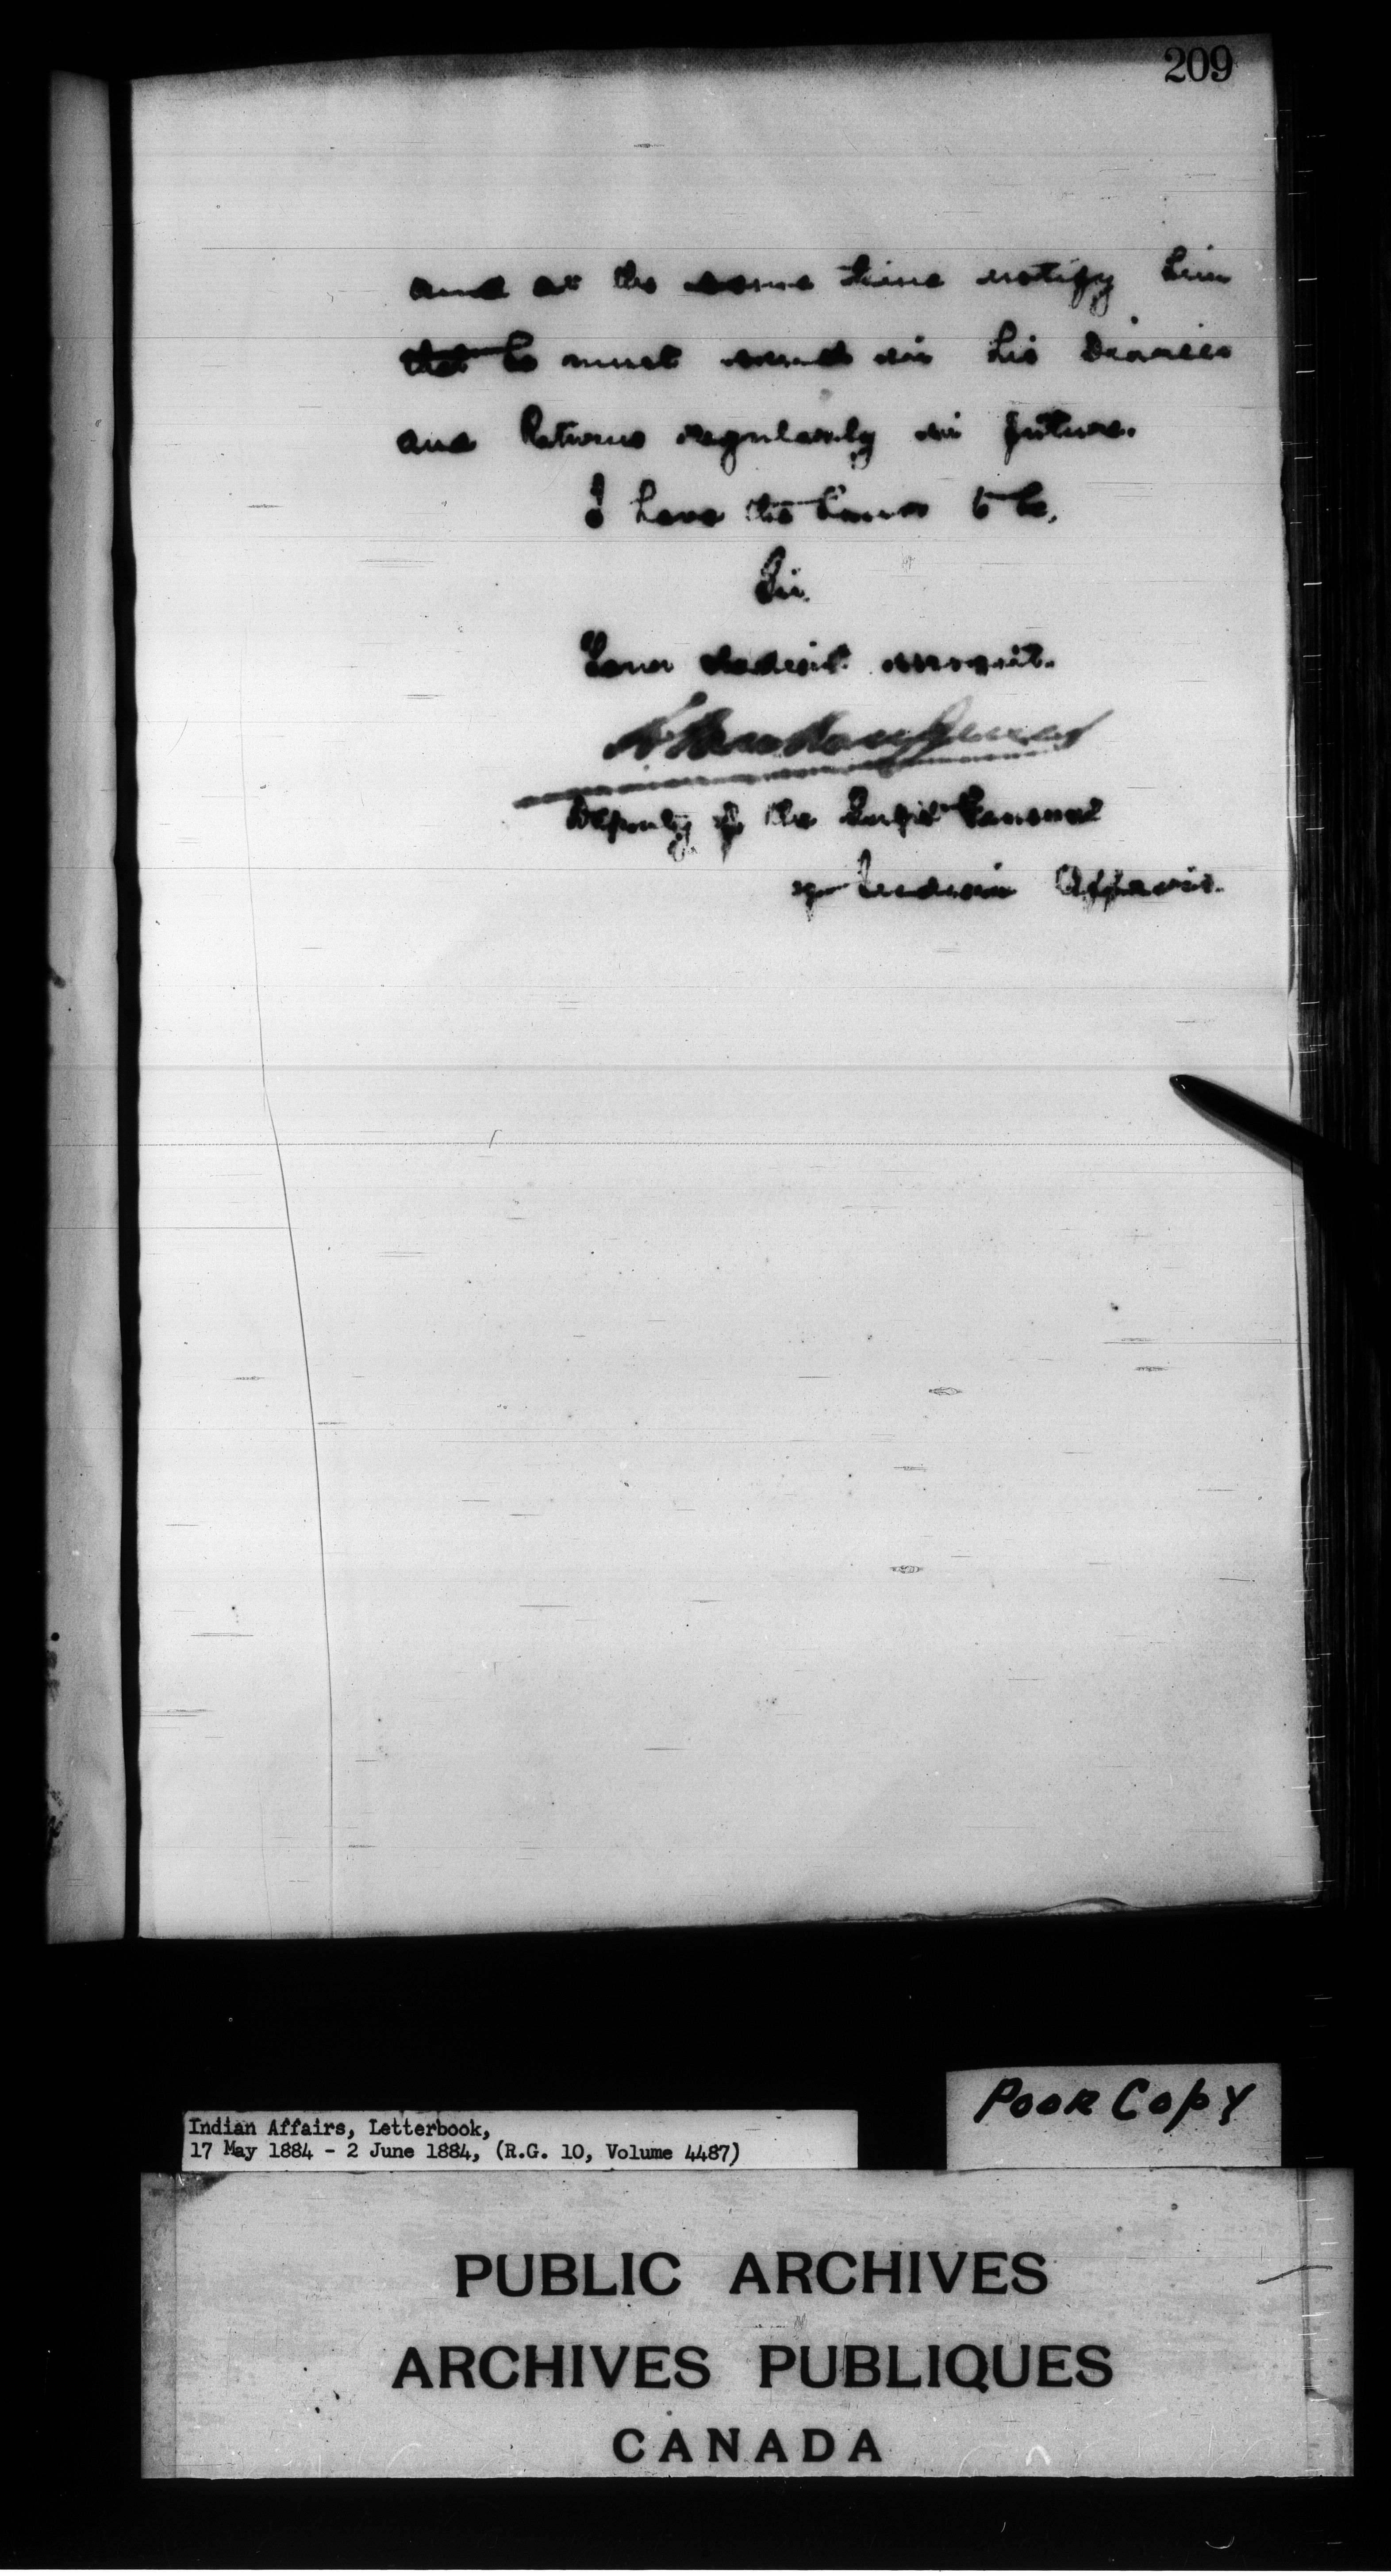 209
and at the same time notify him
that he must send in his Diaries
and Returns regularly in future.
I have the honor to be,
Sir,
Your obedient servant.
Deputy of the Supt General
of Indian Affairs.
Poor Copy
Indian Affairs, Letterbook,
17 May 1884 - 2 June 1884, (R.G. 10, Volume 4487)
PUBLIC ARCHIVES
ARCHIVES PUBLIQUES
CANADA